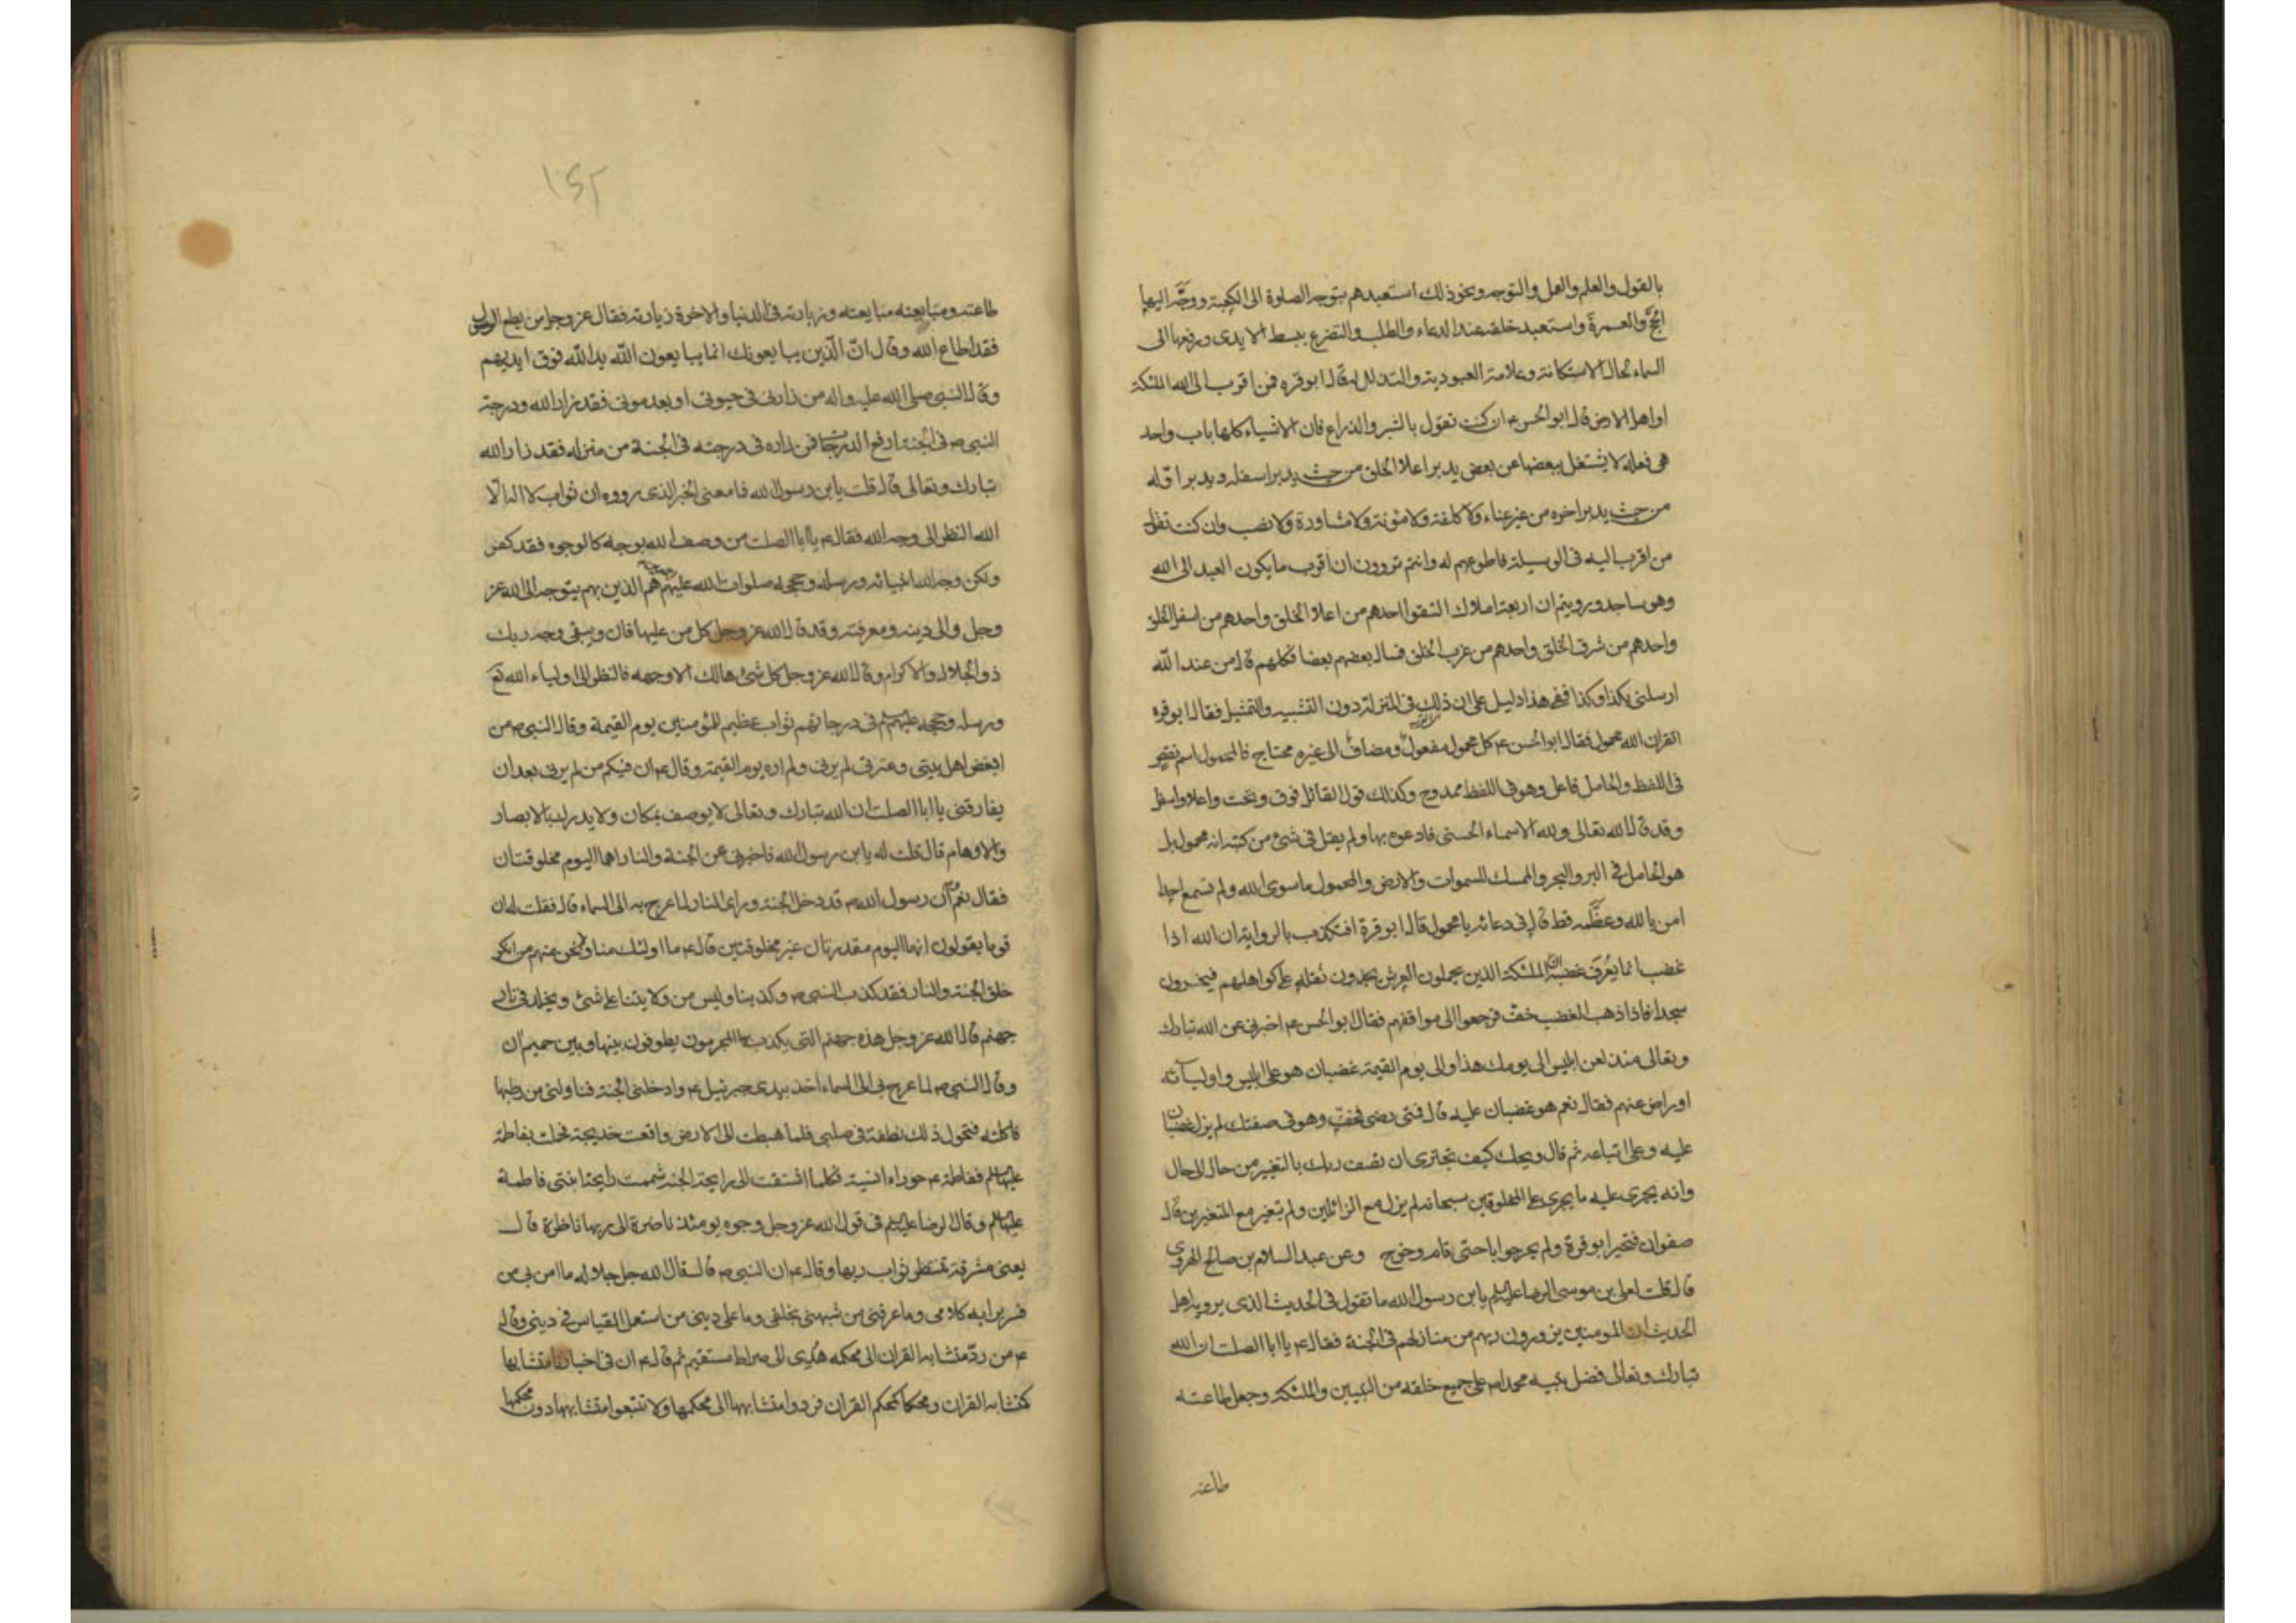 بالقول والعلم والعمل والتوجه ونحو ذلك استعبدهم بتوجه الصلوة الى الكعبة ووجّه اليها
الحجّ والعمرة واستعبد خلقه عند الدعاء والطلب والتضرع ببسط الايدى ورفعها الى
السماء لحال الاستكانة وعلامة العبودية والتذلل له قال ابو قره فمن اقرب الى الله الملئكة
او اهل الارض قال ابو الحسن ع ان كنت تقول بالشبر والذراع فان الاشياء كلها باب واحد
هى فعله لا يشتغل ببعضها عن بعض يدبر اعلا الخلق من حيث يدبر اسفله ويدبر اوّله
من حيث يدبر اخره من غير عناء ولا كلفة ولا مئونة ولا مشاورة ولا نصب وان كنت تقول
من اقرب اليه فى الوسيلة فاطوعهم له وانتم تروون ان اقرب ما يكون العبد الى الله
وهو ساجد ورويتم ان اربعة املاك التقوا احدهم من اعلا الخلق واحدهم من اسفل الخلق
واحدهم من شرق الخلق واحدهم من غرب الخلق فسال بعضهم بعضا فكلهم قال من عند الله
ارسلنى بكذا وكذا ففى هذا دليل على ان ذلك فى المنزلة دون التشبيه والتمثيل فقال ابو قره
اتقر ان الله محمول فقال ابو الحسن ع كل محمول مفعول ومضاف الى غيره محتاج فالمحمول اسم نقص
فى اللفظ والحامل فاعل وهو فى اللفظ ممدوح وكذلك قول القائل فوق وتحت واعلا واسفل
وقد قال الله تعالى ولله الاسماء الحسنى فادعوه بها ولم يقل فى شئ من كتبه انه محمول بل
هو الحامل فى البر والبحر والممسك للسموات والارض والمحمول ما سوى الله ولم نسمع احدا
امن بالله وعظّمه قط قال فى دعائه يا محمول قال ابو قرة افتكذب بالرواية ان الله اذا
غضب انما يُعرف غضبه ان الملئكة الذين يحملون العرش يجدون ثقله على كواهلهم فيخرون
سجدا فاذا ذهب الغضب خفّ فرجعوا الى مواقفهم فقال ابو الحسن ع اخبرنى عن الله تبارك
وتعالى منذ لعن ابليس الى يومك هذا والى يوم القيمة غضبان هو على ابليس واوليائه
او راض عنهم فقال نعم هو غضبان عليه قال فمتى رضى فخفّ وهو فى صفتك لم يزل غضبان
عليه وعلى اتباعه ثم قال ويحك كيف تجترى ان تصف ربك بالتغيير من حال الى حال
وانه يجرى عليه ما يجرى على المخلوقين سبحانه لم يزل مع الزائلين ولم يتغير مع المتغيرين قال
صفوان فتحير ابو قرة ولم يحر جوابا حتى قام وخرج وعن عبد السلام بن صالح الهروى
قال قلت لعلى بن موسى الرضا عليه السلم يابن رسول الله ما تقول فى الحديث الذى يرويه اهل
الحديث ان المومنين يزورون ربهم من منازلهم فى الجنة فقال ع يا ابا الصلت ان الله
تبارك وتعالى فضل نبيه محمدا ص على جميع خلقه من النبيين والملئكة وجعل طاعته
طاعته
١٤٢
طاعته ومتابعته متابعته وزيارته فى الدنيا والاخرة زيارته فقال عز وجل من يطع الرسول
فقد اطاع الله وقال انّ الّذين يبايعونك انما يبايعون الله يد الله فوق ايديهم
وقال النبى صلى الله عليه واله من زارنى فى حيوتى او بعد موتى فقد زار الله ودرجة
النبى ص فى الجنة ارفع الدرجات فمن زاره فى درجته فى الجنة من منزله فقد زار الله
تبارك وتعالى قال قلت يابن رسول الله فما معنى الخبر الذى رووه ان ثواب لا اله الّا
الله النظر الى وجه الله فقال ع يا ابا الصلت من وصف الله بوجه كالوجوه فقد كفر
ولكن وجه الله انبيائه ورسله وحججه صلوات الله عليهم هم الذين بهم يتوجه الى الله عز
وجل والى دينه ومعرفته وقد قال الله عز وجل كل من عليها فان ويبقى وجه ربك
ذو الجلال والاكرام وقال الله عز وجل كل شئ هالك الا وجهه فالنظر الى اولياء الله تع
ورسله وحججه عليهم السلم فى درجاتهم ثواب عظيم للمؤمنين يوم القيمة وقال النبى ص من
ابغض اهل بيتى وعترتى لم يرنى ولم اره يوم القيمة وقال ع ان فيكم من لم يرنى بعد ان
يفارقنى يا ابا الصلت ان الله تبارك وتعالى لا يوصف بمكان ولا يدرك بالابصار
والاوهام قال قلت له يابن رسول الله فاخبرنى عن الجنة والنار اهما اليوم مخلوقتان
فقال نعم ان رسول الله ص قد دخل الجنة وراى النار لما عرج به الى السماء قال فقلت له ان
قوما يقولون انهما اليوم مقدرتان غير مخلوقتين قال ع ما اولئك منا ولا نحن منهم من انكر
خلق الجنة والنار فقد كذب النبى ص وكذبنا وليس من ولايتنا على شئ ويخلد فى نار
جهنم قال الله عز وجل هذه جهنم التى يكذب بها المجرمون يطوفون بينها وبين حميم ان
وقال النبى ص لما عرج بى الى السماء اخذ بيدى جبرئيل ع وادخلنى الجنة فناولنى من رطبها
فاكلته فتحول ذلك نطفة فى صلبى فلما هبطت الى الارض واقعت خديجة فحملت بفاطمة
عليها السلم ففاطمة ع حوراء انسية فكلما اشتقت الى رايحة الجنة شممت رايحة ابنتى فاطمة
عليها السلم وقال الرضا عليه السلم فى قول الله عز وجل وجوه يومئذ ناضرة الى ربها ناظرة قال
يعنى مشرقة تنتظر ثواب ربها وقال ع ان النبى ص قال قال الله جل جلاله ما امن بى من
فسر برايه كلامى وما عرفنى من شبهنى بخلقى وما على دينى من استعمل القياس فى دينى وقال
ع من ردّ متشابه القران الى محكمه هُدِى الى صراط مستقيم ثم قال ع ان فى اخبارنا متشابها
كمتشابه القران ومحكما كمحكم القران فردوا متشابهها الى محكمها ولا تتبعوا متشابهها دون محكمها